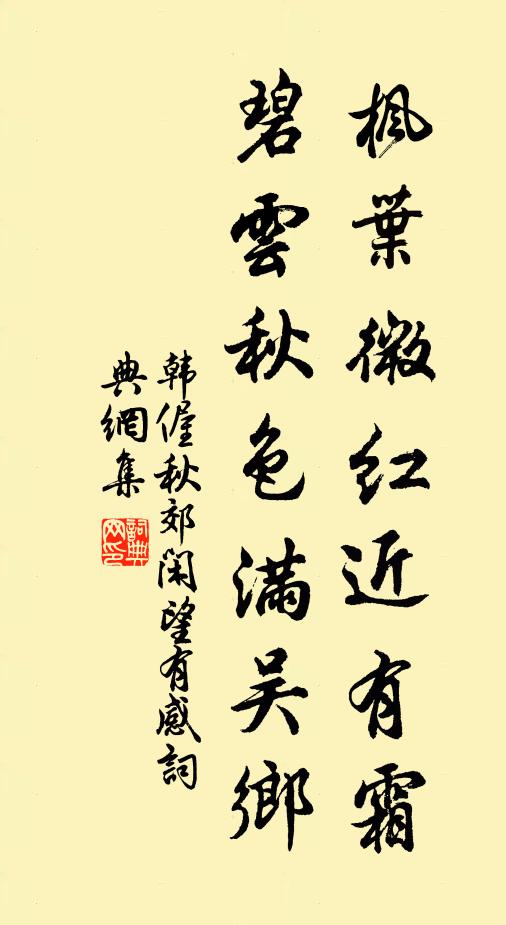 楓葉微紅近有霜
碧雲秋色滿吳鄉
韓偓秋郊閑望有感詞
典網集
詞典
网印